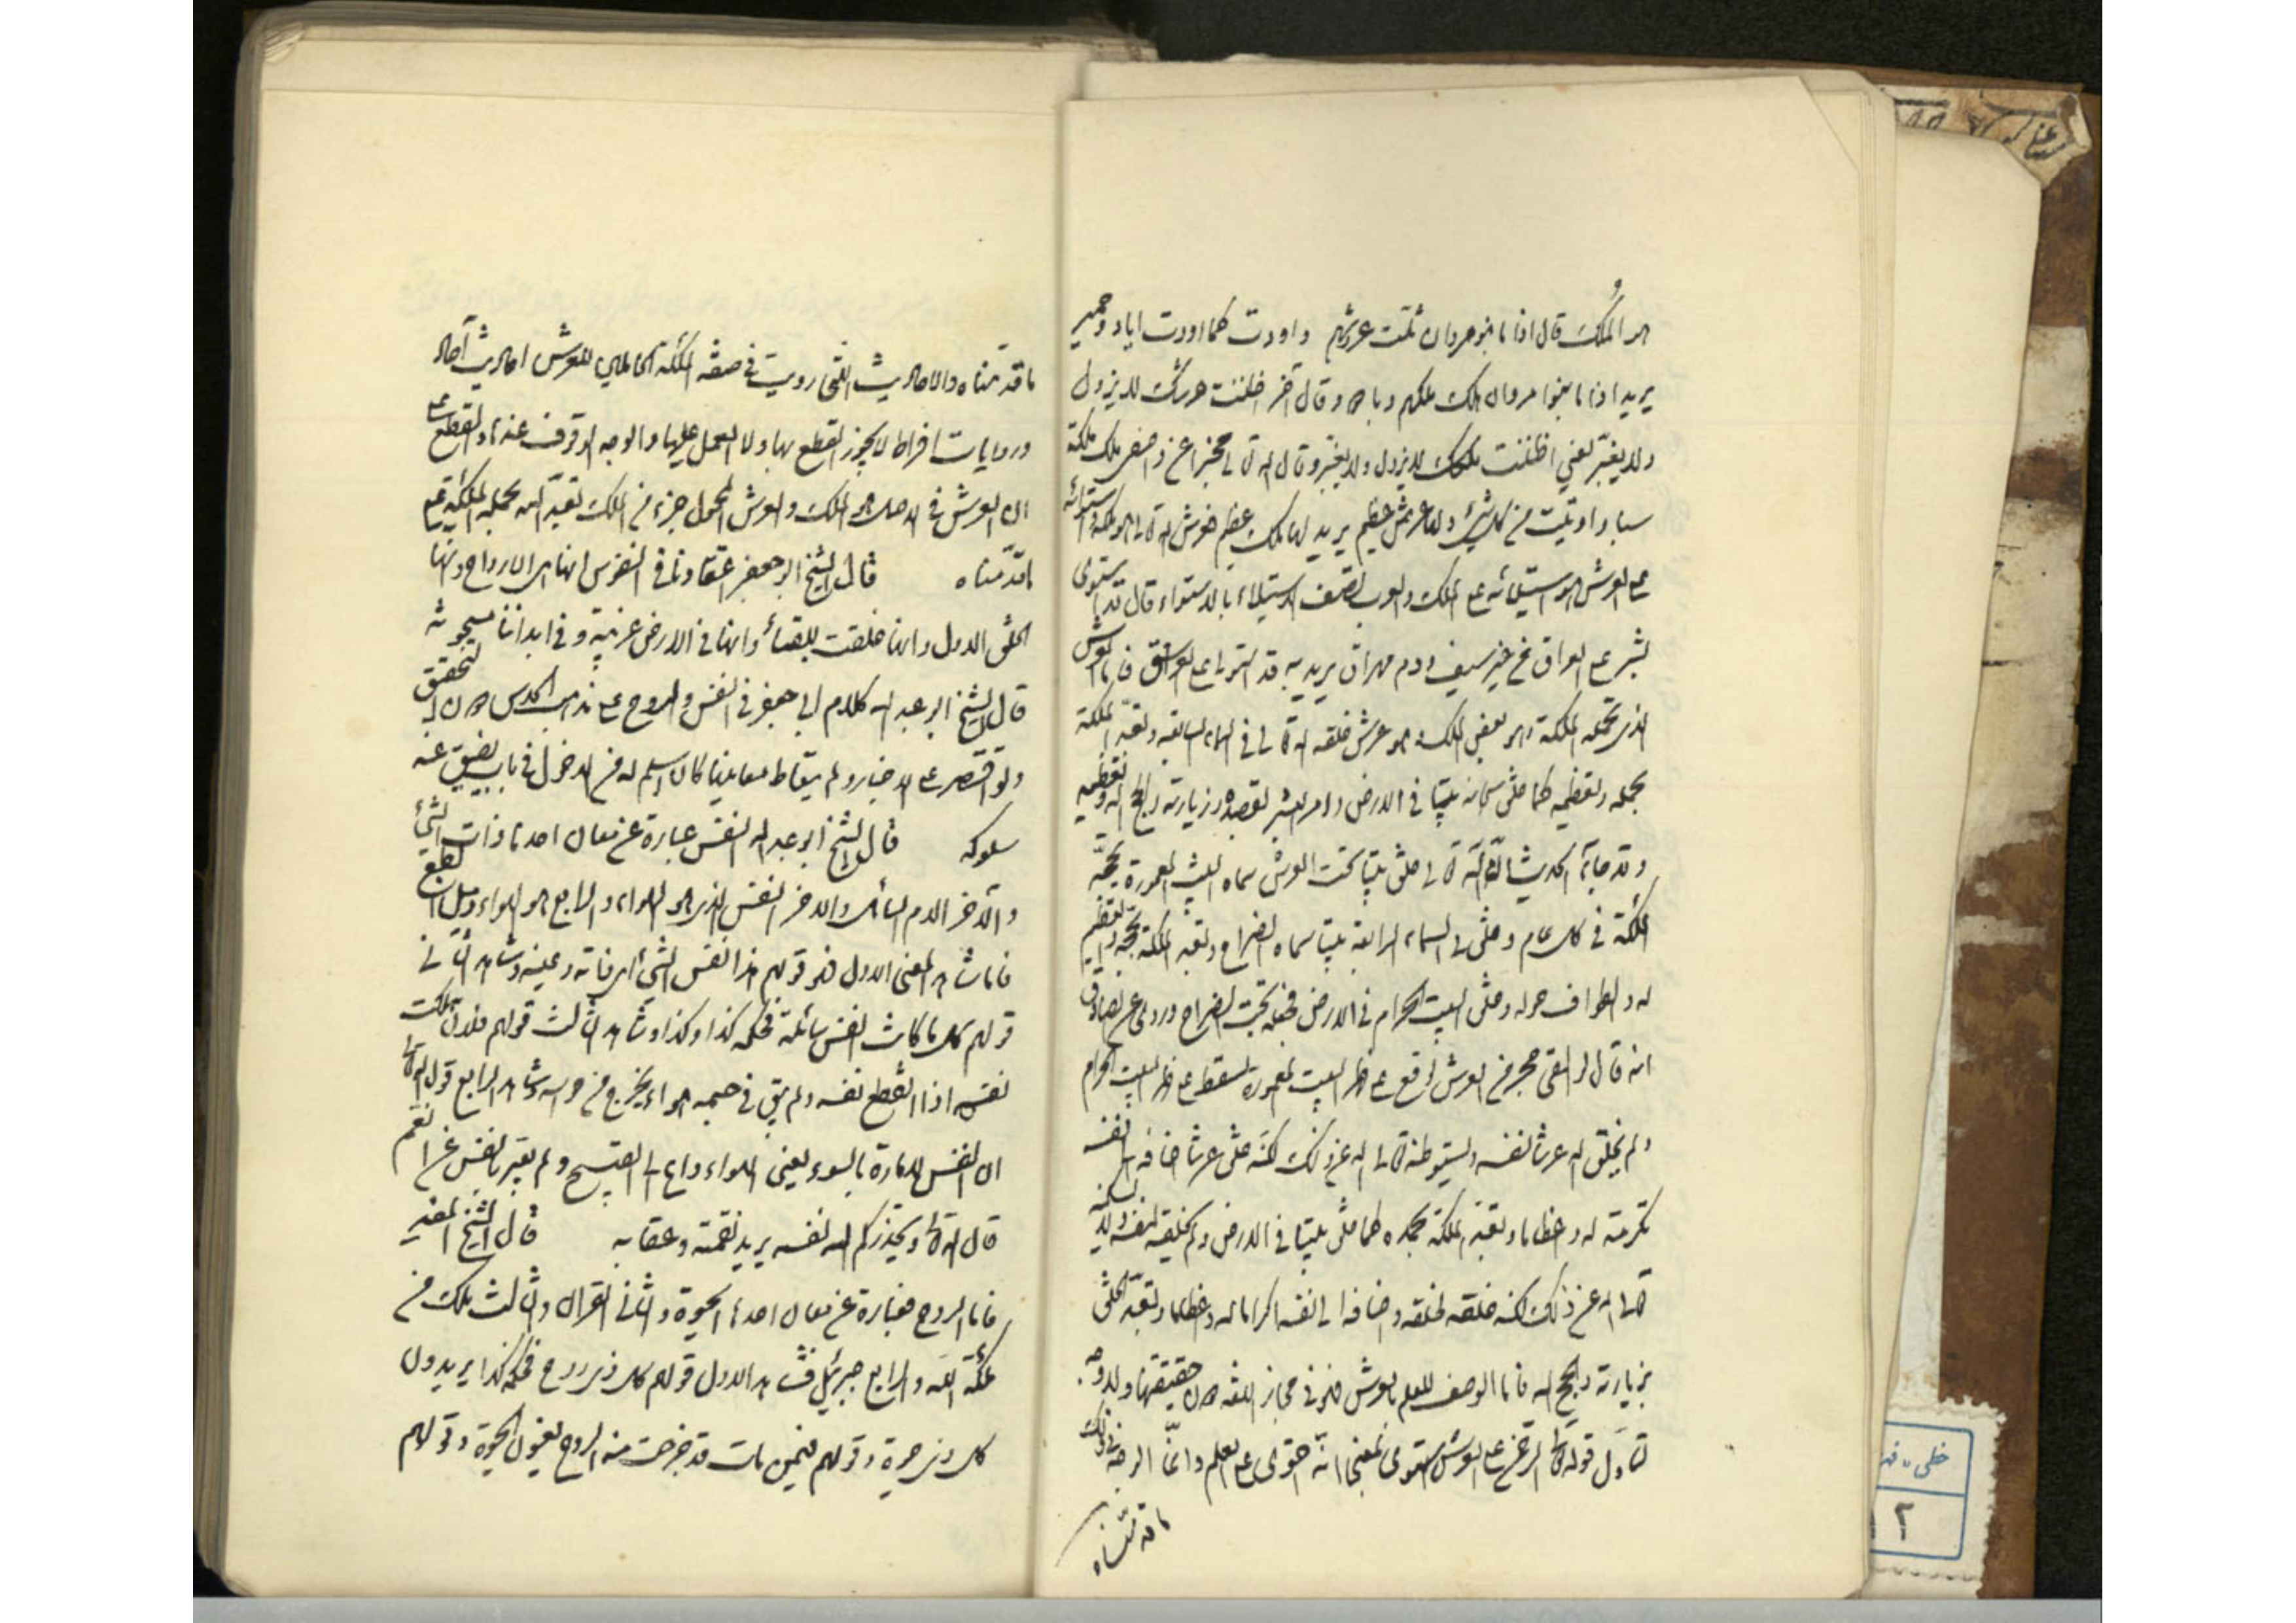 هو الملك قال اذا ما بنو مروان ثلت عروشهم واودت كما اودت اياد وحمير
يريد اذا ما بنوا مروان هلك ملكهم وبادوا وقال آخر اظننت عرشك لا يزول
ولا يغير يعني اظننت ملكك لا يزول ولا يغير وقال الله تعالى مخبرا عن واصف ملك ملكة
سبا واوتيت من كل شئ ولها عرش عظيم يريد لها ملك عظيم فعرش الله تعالى هو ملكه واستوائه
على العرش هو استيلائه على الملك والعرب تصف الاستيلاء بالاستواء قال قد استوى
بشر على العراق من غير سيف ودم مهراق يريد به قد استولى على العراق فاما العرش
الذي تحمله الملئكة هو بعض الملك وهو عرش خلقه الله تعالى في السماء السابعة وتعبد الملئكة
بحمله وتعظيمه كما خلق سبحانه بيتا في الارض وامر البشر بقصده وزيارته والحج اليه وتعظيمه
وقد جاء الحديث ان الله تعالى خلق بيتا تحت العرش سماه البيت المعمور تحجه
الملئكة في كل عام وخلق في السماء الرابعة بيتا سماه الضراح وتعبد الملئكة بحجه والتعظيم
له والطواف حوله وخلق البيت الحرام في الارض فجعله تحت الضراح وروى عن الصادق
انه قال لو القى حجر من العرش لوقع على ظهر البيت المعمور ولسقط على ظهر البيت الحرام
ولم يخلق الله عرشا لنفسه ليستوطنه تعالى الله عن ذلك لكنه خلق عرشا اضافه الى نفسه
تكرمة له واعظاما وتعبد الملئكة بحمله كما خلق بيتا في الارض ولم يخلقه لنفسه ولا ليسكنه
تعالى الله عن ذلك لكنه خلقه لخلقه واضافه الى نفسه اكراما له واعظاما وتعبد الخلق
بزيارته والحج اليه فاما الوصف للعلم بالعرش فهو في مجاز اللغة دون حقيقتها ولا وجه
لتأول قوله تعالى الرحمن على العرش استوى بمعنى انه احتوى على العلم وانما الوجه في ذلك
ما قدمناه
ما قدمناه والاحاديث التي رويت في صفة الملئكة الحاملين للعرش احاديث آحاد
وروايات افراد لا يجوز القطع بها ولا العمل عليها والوجه الوقوف عندها والقطع على
ان العرش في الاصل هو الملك والعرش المحمول جزء من الملك تعبد الله بحمله الملئكة على
ما قدمناه قال الشيخ ابو جعفر اعتقادنا في النفوس انها هى الارواح وانها
الخلق الاول وانها خلقت للبقاء وانها في الارض غريبة و في ابداننا مسجونة
قال الشيخ ابو عبد الله كلام ابي جعفر في النفس والروح على مذهب الحدس دون التحقيق
ولو اقتصر على الاخبار ولم يتعاط معانيها كان اسلم له من الدخول في باب يضيق عنه
سلوكه قال الشيخ ابو عبد الله النفس عبارة عن معان احدها ذات الشئ
والآخر الدم السائل والاخر النفس الذى هو الهواء والرابع هو الهواء وميل الطبع
فاما شاهد المعنى الاول فهو قولهم هذا نفس الشئ اى ذاته وعينه وشاهد الثاني
قولهم كل ما كانت النفس سائلة فحكمه كذا وكذا وشاهد الثالث قولهم فلان هلكت
نفسه اذا انقطع نفسه ولم يبق في جسمه هواء يخرج من حواسه وشاهد الرابع قول الله تعالى
ان النفس لامارة بالسوء يعني الهواء داع الى القبيح ولم يعبر بالنفس عن النقم
قال الله تعالى ويحذركم الله نفسه يريد نقمته وعقابه قال الشيخ المفيد
فاما الروح فعبارة عن معان احدها الحيوة والثاني القران والثالث ملك من
ملئكة الله والرابع جبرئيل فشاهد الاول قولهم كل ذى روح فحكمه كذا يريدون
كل ذى حيوة وقولهم فيمن مات قد خرجت منه الروح يعنون الحيوة وقولهم
خطی
۲